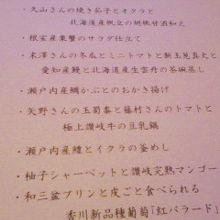 ・久山さんの焼き茄子とオクラと
北海道産帆立の胡桃酢和え
・根室産葉蟹のサラダ仕立て
・米澤さんの冬瓜とミニトマトと
愛知産鰻と北海道産生雲丹の茶碗蒸し
・瀬戸内産鯛かぶとのおかき揚げ
・矢野さんの玉蜀黍と藤村さんのトマトと
極上讃岐牛の豆乳鍋
・瀬戸内産鱧とイクラの釜めし
・柚子シャーベットと讃岐完熟マンゴー
・和三盆プリンと皮ごと食べられる
香川新品種葡萄「紅バラード」